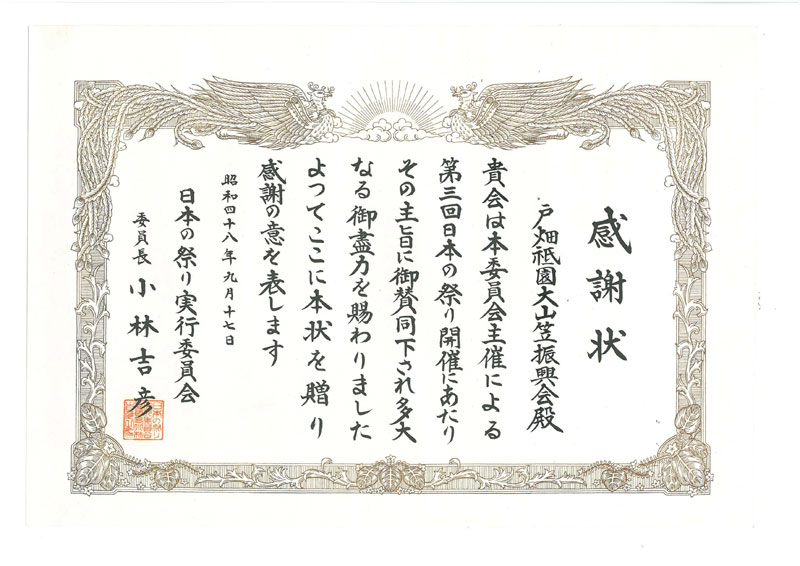 感謝状
戸畑祇園大山笠振興会殿
貴会は本委員会主催による
第三回日本の祭り開催にあたり
その主旨に御賛同下され多大
なる御盡力を賜わりました
よつてここに本状を贈り
感謝の意を表します
昭和四十八年九月十七日
日本の祭り実行委員会
委員長 小林吉彦